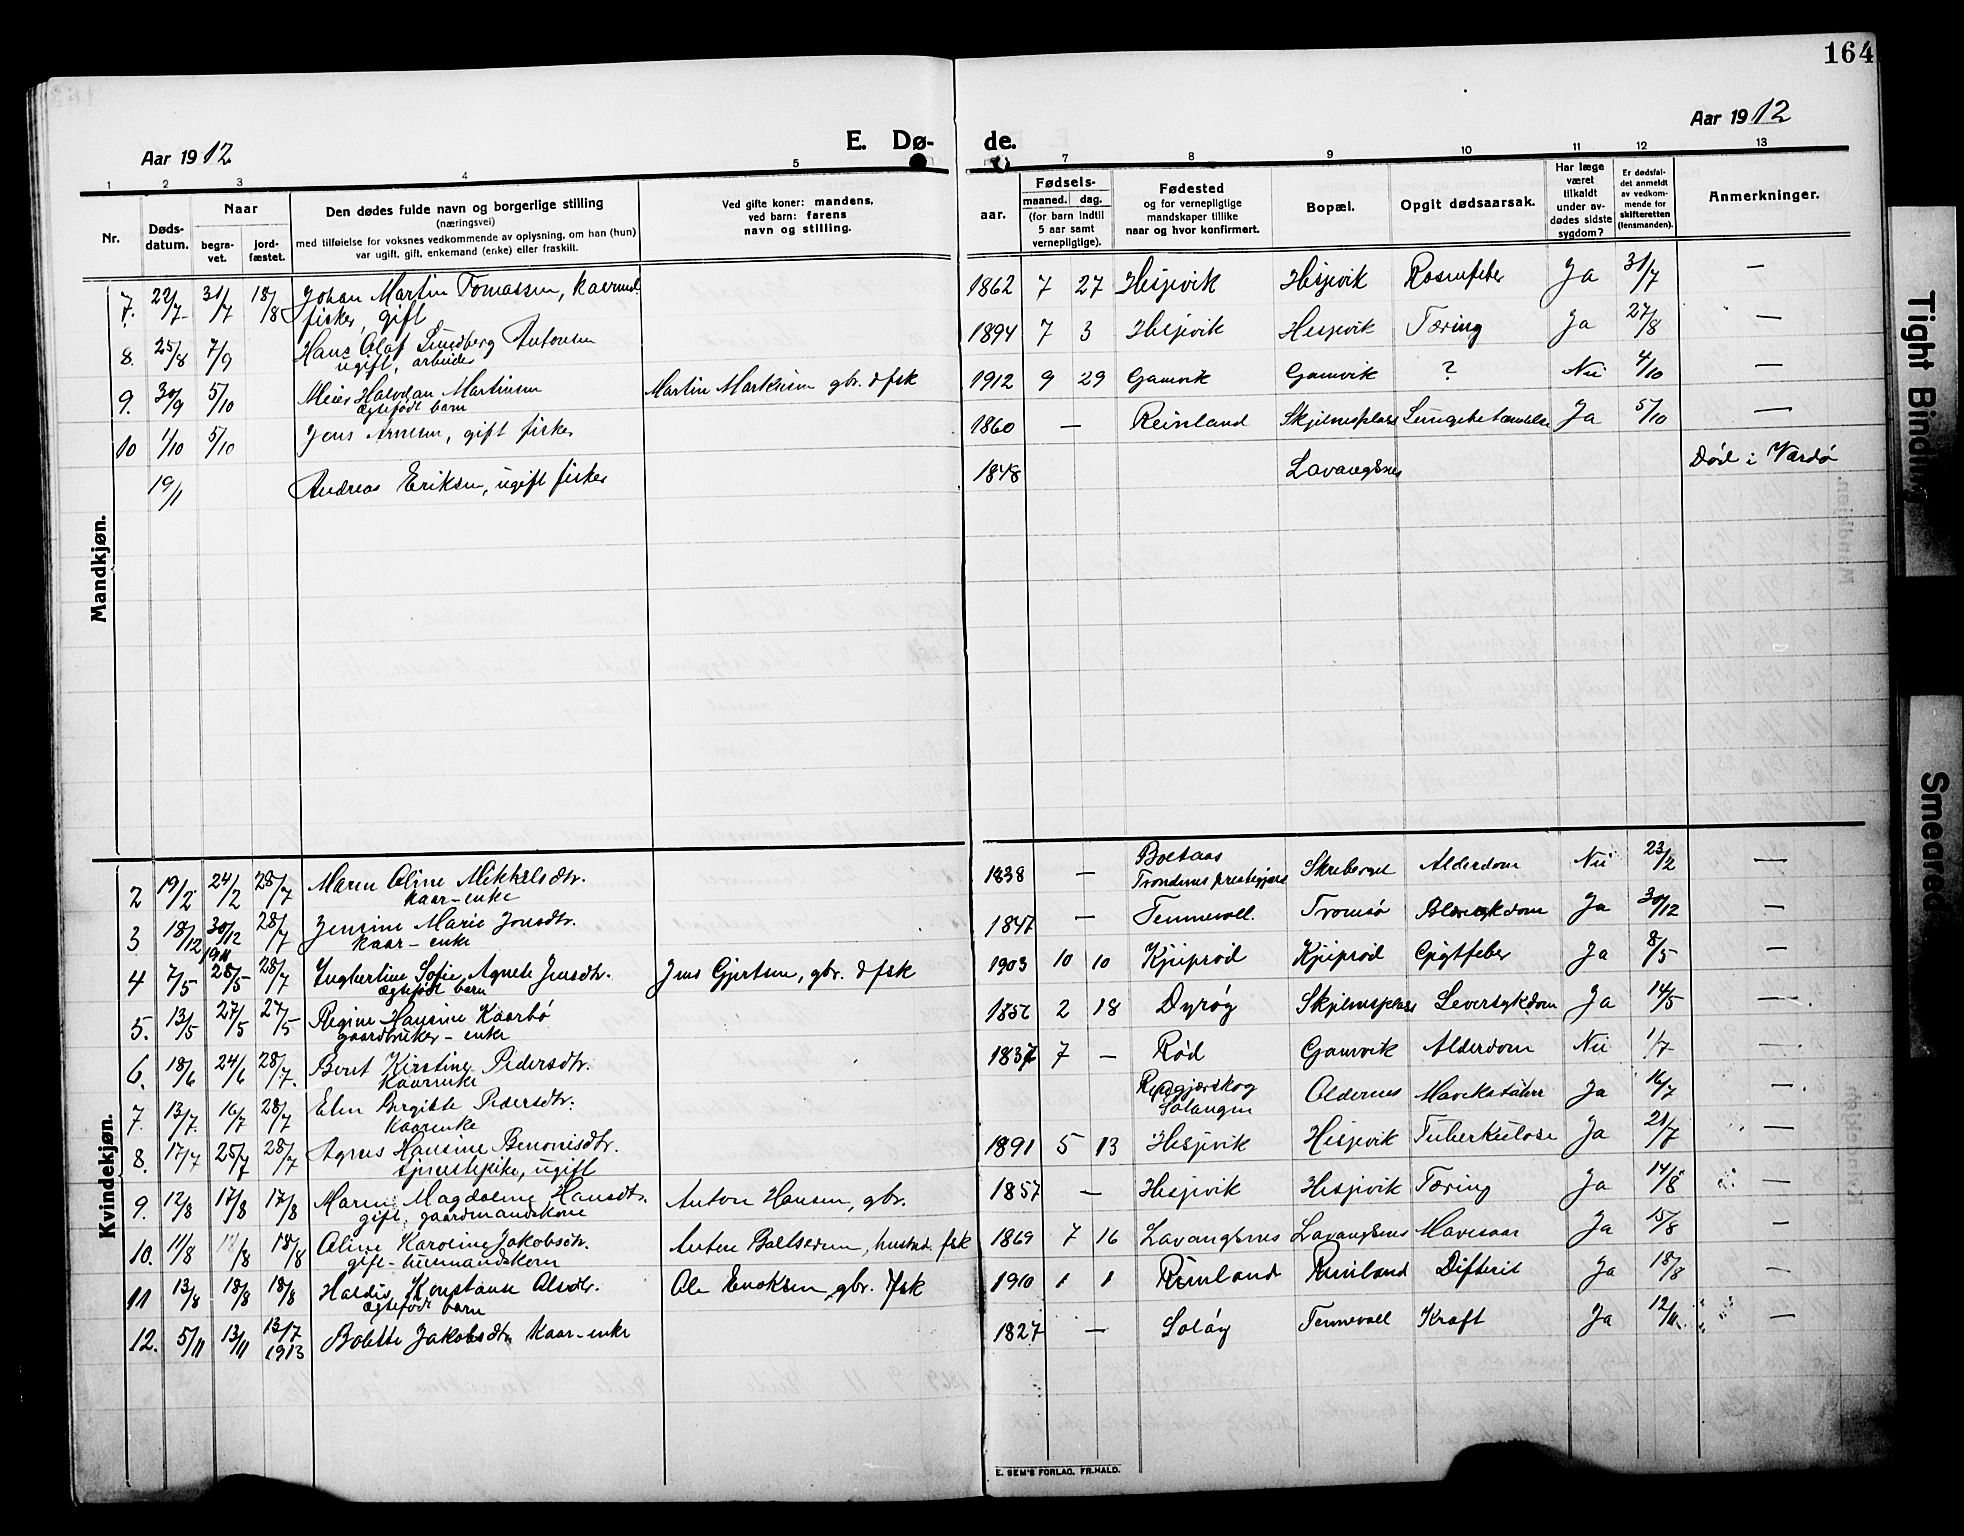 164
Aar 1912
E. Dø-
de.
Aar 1912
1 2 3 4 5 7 8 9 10 11 12 13
Nr.
Døds-
datum.
Naar
begra-
vet.
jord-
fæstet.
Den dødes fulde navn og borgerlige stilling
(næringsvei)
med tilføielse for voksnes vedkommende av oplysning, om han (hun)
var ugift, gift, enkemand (enke) eller fraskilt.
Ved gifte koner: mandens,
ved barn: farens
navn og stilling.
Fødsels-
aar.
maaned. dag.
(for barn indtil
5 aar samt
vernepligtige).
Fødested
og for vernepligtige
mandskaper tillike
naar og hvor konfirmert.
Bopæl.
Opgit dødsaarsak.
Har læge
været
tilkaldt
under av-
dødes sidste
sygdom?
Er dødsfal-
det anmeldt
av vedkom-
mende for
skifteretten
(lensmanden).
Anmerkninger.
Mandkjøn.
7. 22/7 31/7 18/8 Johan Martin Tomassen, kaarmd. 1862 7 27 Hesjevik Hesjevik Rosenfeber Ja 31/7 —
fisker, gift
8. 25/8 7/9 Hans Olaf Lundberg Antonsen 1894 7 3 Hesjevik Hesjevik Tæring Ja 27/8 —
ugift, arbeider
9. 30/9 5/10 Meier Halvdan Martinsen Martin Markusen gbr. & fsk 1912 9 29 Gamvik Gamvik ? Nei 4/10 —
ægtefødt barn
10 1/10 5/10 Jens Arnesen, gift fisker 1860 — Reinland Skjelnesplads Lungebetændelse Ja 5/10 —
19/1 Andreas Eriksen, ugift fisker 1848 Lavangsnes Død i Vardø
Kvindekjøn.
2 19/2 24/2 28/7 Maren Oline Mikkelsdtr. 1838 — Boltaas Trondenes prestegjæld Skreberget Alderdom Nei 23/2 —
kaar-enke
3 18/12 30/12 1911 28/7 Jensine Marie Jonsdtr. 1847 — Tennevoll. Tromsø Ja 30/12 —
kaar-enke
4 7/5 28/5 28/7 Ingbertine Sofie Agnete Jensdtr. Jens Gjertsen, gbr. & fsk 1903 10 10 Kjeiprød Kjeiprød Gigtfeber Ja 8/5 —
ægtefødt barn
5. 13/5 27/5 27/5 Regine Hansine Kaarbø 1856 2 18 Dyrøy Skjelnesplads Leversykdom Ja 14/5 —
gaardbruker-enke
6. 18/6 24/6 28/7. Beret Kirstine Pedersdtr. 1837 7 — Rød Gamvik Alderdom Nei 1/7 —
Kaarenke
7. 13/7 16/7 28/7 Elen Birgitte Pedersdtr. Salangen Oldernes Mavekatarr Ja 16/7 —
Kaarenke
8. 17/7 25/7 28/7 Agnes Hansine Benonisdtr. 1891 5 13 Hesjevik Hesjevik Tuberkulose Ja 21/7 —
tjenestepike, ugift
9. 12/8 17/8 17/8 Maren Magdalene Hansdtr. Anton Hansen, gbr. 1857 — Hesjevik Hesjevik Tæring Ja 14/8 —
gift, gaardmandskone
10. 11/8 18/8 18/8 Oline Karoline Jakobsdtr. Anton Baltsersen, husmd. fsk 1869 7 16 Lavangsnes Lavangsnes Mavesaar Ja 15/8 —
gift-husmandskone
11 13/8 18/8 18/8 Haldis Konstanse Olsdtr. Ole Enoksen, gbr. & fsk 1910 1 1 Reinland Reinland Difterit Ja 18/8 —
ægtefødt barn
12. 5/11 13/11 13/7 1913 Bolette Jakobsdtr. Kaar-enke 1827 — Soløy Tennevoll Kræft Ja 12/11 —
E. SEM'S FORLAG, FR.HALD.
Tight Binding
Smeared